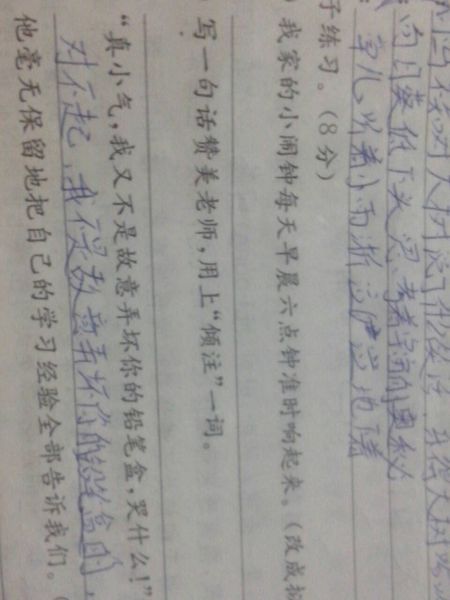 向日葵低下头思考着宇宙的奥秘
草儿听着小雨淅
子练习。(8分)
)我家的小闹钟每天早晨六点钟准时响起来。(改成拟
)写一句话赞美老师,用上“倾注”一词。
“真小气,我又不是故意弄坏你的铅笔盒,哭什么!”
对不起,我不是故意弄坏你的铅笔盒的,
他毫无保留地把自己的学习经验全部告诉我们。(